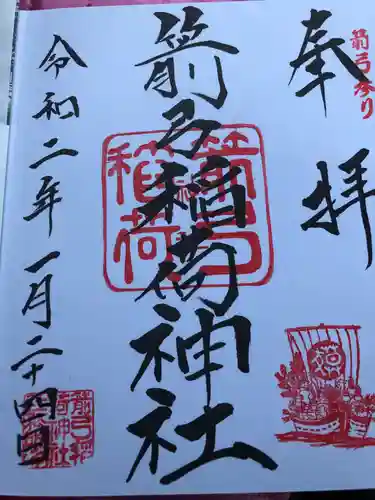 奉拝
箭弓参り
箭弓稲荷神社
箭弓稲荷
令和二年一月二十四日
箭弓稲荷神社
福